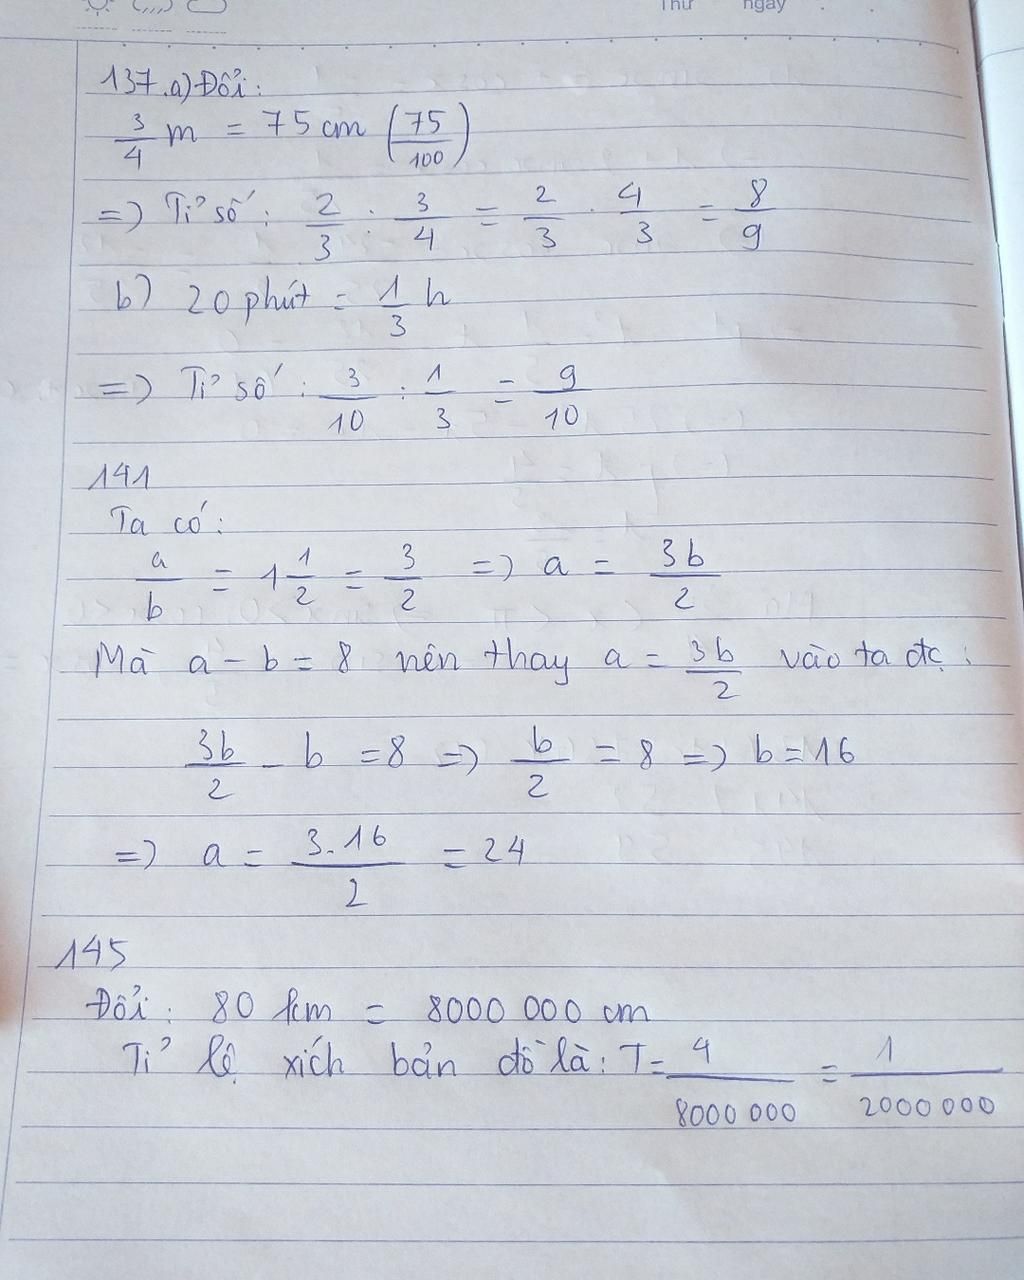 Thứ ngày
137.a) Đổi:
3/4 m = 75 cm (75/100)
=) Tỉ số: 2/3 : 3/4 = 2/3 . 4/3 = 8/9
b) 20 phút = 1/3 h
=) Tỉ số: 3/10 : 1/3 = 9/10
141
Ta có:
a/b = 1 1/2 = 3/2 =) a = 3b/2
Mà a - b = 8 nên thay a = 3b/2 vào ta đc:
3b/2 - b = 8 =) b/2 = 8 =) b = 16
=) a = 3.16/2 = 24
145
Đổi: 80 km = 8000 000 cm
Tỉ lệ xích bản đồ là: T = 4/8000 000 = 1/2000 000